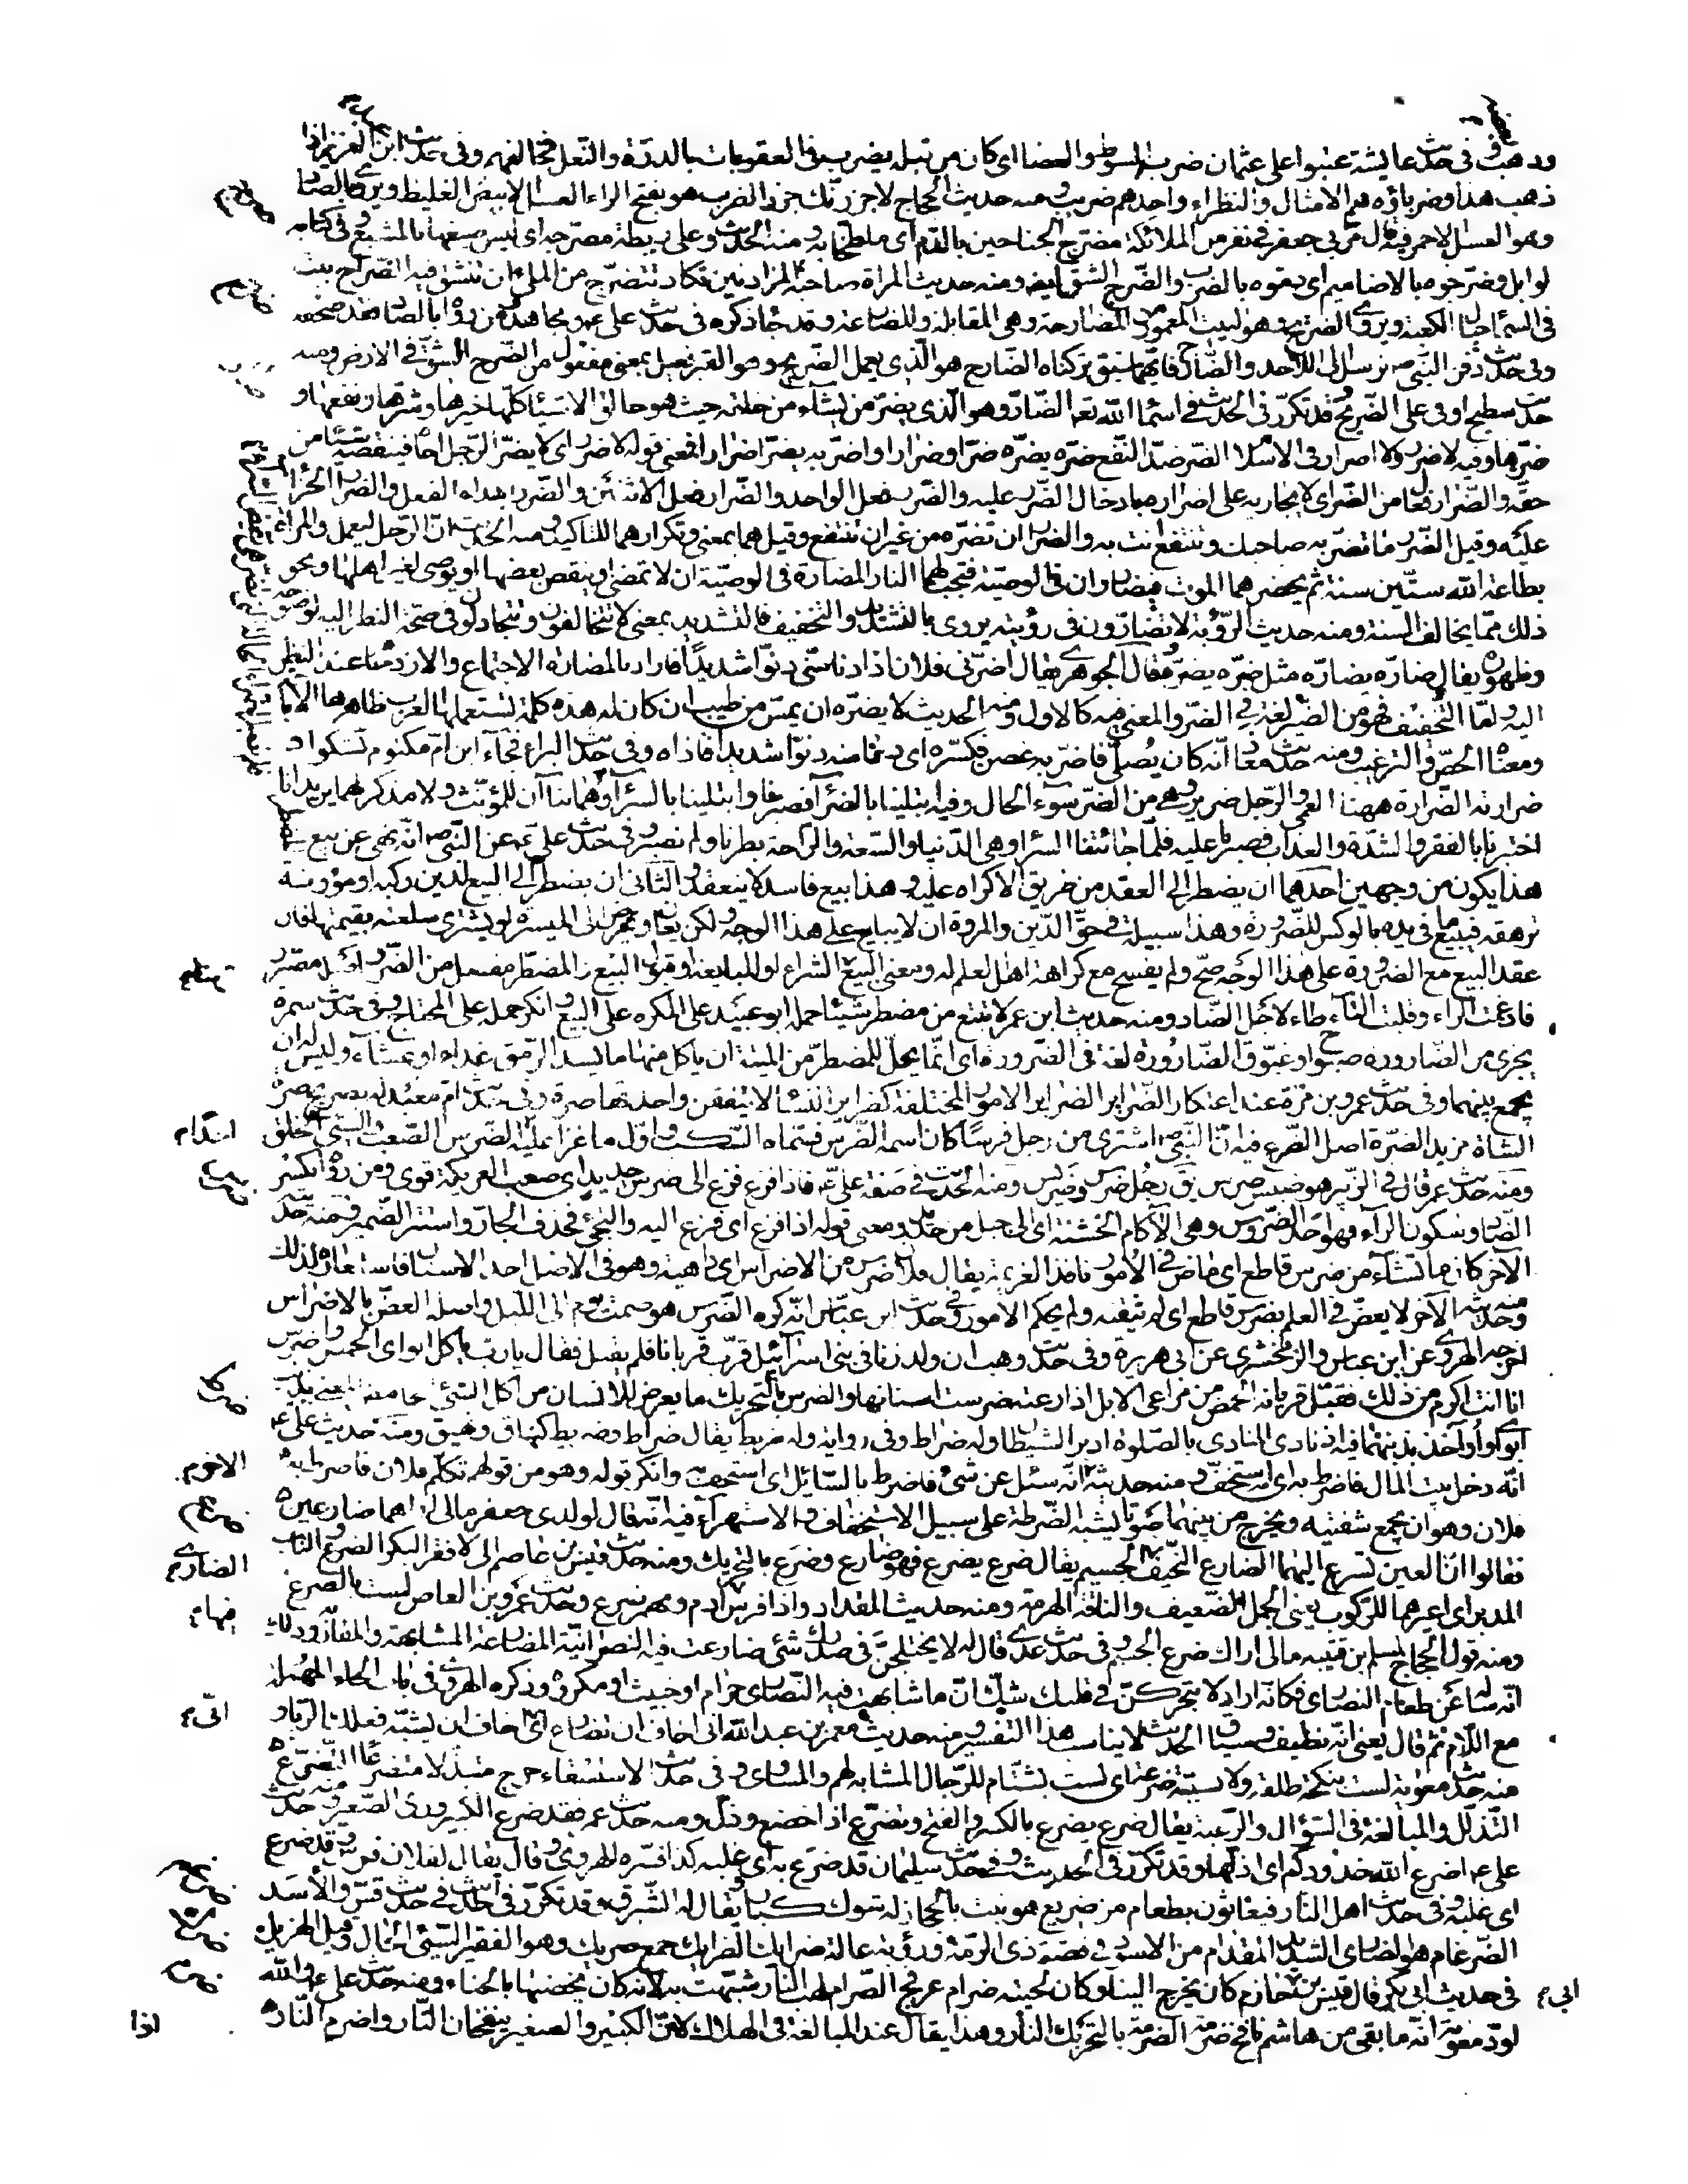 وذهب وفى حديث عايشة عتبوا على عثمان ضربه بالسوط والعصا اى كان من قبله يضرب فى العقوبات بالدرة والنعل فخالفهم وفى حديث ابن عبد العزيز اذا
ذهب هذا وضرباؤه هم الامثال والنظراء واحدهم ضريب ومنه حديث الحجاج لاجزرنك جزر الضرب هو بفتح الراء العسل الابيض الغليظ ويروى بالصاد
وهو العسل الاحمر فيه قال مر بى جعفر فى نفر من الملائكة مضرج الجناحين بالدم اى ملطخا به ومنه الحديث وعلى ريطة مضرجة اى ليس صبغها بالمشبع وفى كتابه
لوائل وضرجوه بالاضاميم اى دموه بالضرب والضرج الشق ايضا ومنه حديث المراة صاحبة المزادتين تكاد تتضرج من الملء اى تنشق فيه الضراح بيت
فى السماء حيال الكعبة ويروى الضريح وهو البيت المعمور من المضارحة وهى المقابلة والمضارعة وقد جاء ذكره فى حديث على ومجاهد ومن رواه بالصاد فقد صحفه
وفى حديث دفن النبى ص نرسل الى اللاحد والضارح فايهما سبق تركناه الضارح هو الذى يعمل الضريح وهو القبر فعيل بمعنى مفعول من الضرح الشق فى الارض ومنه
حديث سطيح اوفى على الضريح وقد تكرر فى الحديث فى اسماء الله تعالى الضار وهو الذى يضر من يشاء من خلقه حيث هو خالق الاشياء كلها خيرها وشرها ونفعها و
ضرها وفيه لا ضرر ولا اضرار فى الاسلام الضر ضد النفع ضره يضره ضرا وضرارا واضر به يضر اضرارا فمعنى قوله لا ضرر اى لا يضر الرجل اخاه فينقصه شيئا من
حقه والضرار فعال من الضر اى لا يجازيه على اضراره بادخال الضرر عليه والضرر فعل الواحد والضرار فعل الاثنين والضرر ابتداء الفعل والضرار الجزاء
عليه وقيل الضرر ما تضر به صاحبك وتنتفع انت به والضرار ان تضره من غير ان تنتفع وقيل هما بمعنى وتكرارهما للتاكيد ومنه الحديث ان الرجل ليعمل والمراة
بطاعة الله ستين سنة ثم يحضرهما الموت فيضاران فى الوصية فتجب لهما النار المضارة فى الوصية ان لا تمضى او ينقص بعضها او يوصى لغير اهلها ونحو
ذلك مما يخالف السنة ومنه حديث الرؤية لا تضارون فى رؤيته يروى بالتشديد والتخفيف فالتشديد بمعنى لا تتخالفون وتتجادلون فى صحة النظر اليه لوضوحه
وظهوره يقال ضاره يضاره مثل ضره يضره وقال الجوهرى يقال اضرنى فلان اذا دنا منى دنوا شديدا فاراد بالمضارة الاجتماع والازدحام عند النظر
اليه واما التخفيف فهو من الضير لغة فى الضر والمعنى فيه كالاول ومنه الحديث لا يضره ان يمس من طيب ان كان له هذه كلمة تستعملها العرب ظاهرها الاباحة
ومعناه الحض والترغيب ومنه حديث معاذ انه كان يصلى فاضر به غصن فكسره اى دنا منه دنوا شديدا فاذاه وفى حديث البراء فجاء ابن ام مكتوم تشكو
ضرارته الضرارة ههنا العمى والرجل ضرير وهى من الضر سوء الحال وفيه ابتلينا بالضراء فصبرنا وابتلينا بالسراء وهما بناآن للمؤنث ولا مذكر لهما يريد انا
اختبرنا بالفقر والشدة والعذاب فصبرنا عليه فلما جاءتنا السراء وهى الدنيا والسعة والراحة بطرنا ولم نصبر وفى حديث على عن النبى ص انه نهى عن بيع المضطر
هذا يكون من وجهين احدهما ان يضطر الى العقد من طريق الاكراه عليه وهذا بيع فاسد لا ينعقد والثانى ان يضطر الى البيع لدين ركبه او مؤونة
ترهقه فيبيع ما فى يده بالوكس للضرورة وهذا سبيله فى حق الدين والمروة ان لا يبايع على هذا الوجه ولكن يعان ويقرض الى الميسرة او يشترى سلعته بقيمتها فان
عقد البيع مع الضرورة على هذا الوجه صح ولم يفسخ مع كراهة اهل العلم له ومعنى البيع الشراء او المبايعة او قبول البيع والمضطر مفتعل من الضر واصله مضترر
فادغمت الراء وقلبت التاء طاء لاجل الضاد ومنه حديث ابن عمر لا تبتع من مضطر شيئا حمله ابو عبيد على المكره على البيع وانكر حمله على المحتاج وفى حديث سمرة
يجزى من الضارورة صبوح او غبوق الضارورة لغة فى الضرورة اى انما يحل للمضطر من الميتة ان ياكل منها ما يسد الرمق غداء او عشاء وليس له ان
يجمع بينهما وفى حديث عمرو بن مرة عند اعتكار الضراير الضراير الامور المختلفة كضراير النساء لا يتفقن واحدتها ضرة وفى حديث ام معبد له بصريح ضرة
الشاة مزبد الضرة اصل الضرع فيه ان النبى ص اشترى من رجل فرسا كان اسمه الضرس فسماه السكب واول ما غزا عليه الضرس الصعب السيئ الخلق
ومنه حديث عمر قال فى الزبير هو ضبس ضرس يقال رجل ضرس وضريس ومنه الحديث فى صفة على فاذا فزع فزع الى ضرس حديد اى صعب العريكة قوى ومن رواه بكسر
الضاد وسكون الراء فهو احد الضروس وهى الآكام الخشنة اى الى جبل من حديد ومعنى قوله اذا فزع اى فزع اليه والتجئ فحذف الجار واستتر الضمير ومنه حديثه
الآخر كان ما تشاء من ضرس قاطع اى ماض فى الامور نافذ العزيمة يقال فلان ضرس من الاضراس اى داهية وهو فى الاصل احد الاسنان فاستعاره لذلك
ومنه حديثه الآخر لا يعض فى العلم بضرس قاطع اى لم يتقنه ولم يحكم الامور وفى حديث ابن عباس انه كره الضرس هو صمت يوم الى الليل واصله العض بالاضراس
اخرجه الهروى عن ابن عباس والزمخشرى عن ابى هريرة وفى حديث وهب ان ولد زنا فى بنى اسرائيل قرب قربانا فلم يقبل فقال يا رب ياكل ابواى الحمض واضرس
انا انت اكرم من ذلك فقبل قربانه الحمض من مراعى الابل اذا رعته ضرست اسنانها والضرس بالتحريك ما يعرض للانسان من اكل الشئ الحامض المعنى يذنب
ابواى واؤاخذ بذنبهما فيه اذا نادى المنادى بالصلوة ادبر الشيطان وله ضراط وفى رواية وله ضريط يقال ضراط وضريط كنهاق ونهيق ومنه حديث على
انه دخل بيت المال فاضرط به اى استخف به ومنه حديثه انه سئل عن شئ فاضرط بالسائل اى استخف به وانكر قوله وهو من قولهم تكلم فلان فاضرط به
فلان وهو ان يجمع شفتيه ويخرج من بينهما صوتا يشبه الضرطة على سبيل الاستخفاف والاستهزاء فيه انه قال لولدى جعفر مالى اراهما ضارعين
فقالوا ان العين تسرع اليهما الضارع النحيف الجسيم يقال ضرع يضرع فهو ضارع وضرع بالتحريك ومنه حديث قيس بن عاصم انى لافقر البكر الضرع والناب
المدبر اى اعيرهما للركوب يعنى الجمل الضعيف والناقة الهرمة ومنه حديث المقداد واذا فيهما فرس آدم ومهر ضرع وحديث عمرو بن العاص لست بالضرع
ومنه قول الحجاج لمسلم بن قتيبة مالى اراك ضرع الجسم وفى حديث عدى قال له لا يختلجن فى صدرك شئ ضارعت فيه النصرانية المضارعة المشابهة والمقاربة وذلك
انه ساله عن طعام النصارى فكانه اراد لا يتحركن فى قلبك شك ان ما شابهت فيه النصارى حرام او خبيث او مكروه وذكره الهروى فى باب الحاء المهملة
مع اللام ثم قال يعنى انه نظيف وسياق الحديث لا يناسب هذا التفسير ومنه حديث معمر بن عبد الله انى اخاف ان تضارع اى اخاف ان يشبه فعلك الربا و
منه حديث معوية لست بنكحة طلقة ولا بسببة ضرعة اى لست بشتام للرجال المشابه لهم والمساوى وفى حديث الاستسقاء خرج متبذلا متضرعا التضرع
التذلل والمبالغة فى السؤال والرغبة يقال ضرع يضرع بالكسر والفتح وتضرع اذا خضع وذل ومنه حديث عمر فقد ضرع الكبير ورق الصغير ومنه حديث
على اضرع الله خدودكم اى اذلها وقد تكرر فى الحديث وفى حديث سلمان قد ضرع به اى غلبه كذا فسره الهروى وقال يقال لفلان فرس قد ضرع به
اى غلبه وفى حديث اهل النار فيغاثون بطعام من ضريع هو نبت بالحجاز له شوك كبار ويقال له الشبرق وقد تكرر فى الحديث فى حديث قس والاسد
الضرغام هو الضارى الشديد المقدام من الاسود فى قصة ذى الرمة ورؤبة عالة ضرايك الضرايك جمع ضريك وهو الفقير السيئ الحال وقيل الهزيل
فى حديث ابى بكر قال قيس بن ابى حازم كان يخرج الينا وكان لحيته ضرام عرفج الضرام لهب النار شبهت به لانه كان يخضبها بالحناء ومنه حديث على والله
لود معوية انه ما بقى من هاشم نافخ ضرمة الضرمة بالتحريك النار وهذا يقال عند المبالغة فى الهلاك لان الكبير والصغير ينفخان النار واضرم النار
اذا